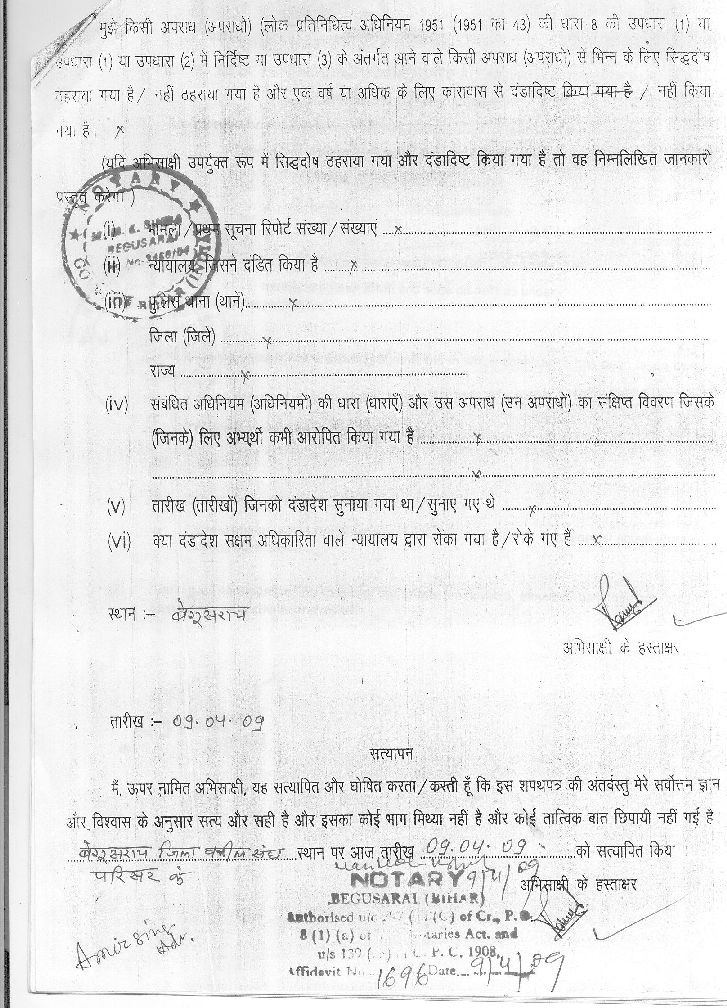 मुझे किसी अपराध (अपराधों) (लोक प्रतिनिधित्व अधिनियम 1951 (1951 का 43) की धारा 8 की उपधारा (1) या
उपधारा (1) या उपधारा (2) में निर्दिष्ट या उपधारा (3) के अंतर्गत आने वाले किसी अपराध (अपराधों) से भिन्न के लिए सिद्धदोष
ठहराया गया है / नहीं ठहराया गया है और एक वर्ष या अधिक के लिए कारावास से दंडादिष्ट किया गया है / नहीं किया
गया है । x
(यदि अभिसाक्षी उपर्युक्त रूप में सिद्धदोष ठहराया गया और दंडादिष्ट किया गया है तो वह निम्नलिखित जानकारी
प्रस्तुत करेगा )
NOTARY
BEGUSARAI
(i) मामला / प्रथम सूचना रिपोर्ट संख्या / संख्याएं x
(ii) न्यायालय जिसने दंडित किया है x
(iii) पुलिस थाना (थाने) x
जिला (जिले) x
राज्य x
(iv) संबंधित अधिनियम (अधिनियमों) की धारा (धाराएँ) और उस अपराध (उन अपराधों) का संक्षिप्त विवरण जिसके
(जिनके) लिए अभ्यर्थी कभी आरोपित किया गया है x
x
(v) तारीख (तारीखों) जिनको दंडादेश सुनाया गया था / सुनाए गए थे x
(vi) क्या दंडादेश सक्षम अधिकारिता वाले न्यायालय द्वारा रोका गया है / रोके गए हैं x
स्थान :- बेगूसराय
अभिसाक्षी के हस्ताक्षर
तारीख :- 09.04.09
सत्यापन
मैं, ऊपर नामित अभिसाक्षी, यह सत्यापित और घोषित करता / करती हूँ कि इस शपथपत्र की अंतर्वस्तु मेरे सर्वोत्तम ज्ञान
और विश्वास के अनुसार सत्य और सही है और इसका कोई भाग मिथ्या नहीं है और कोई तात्विक बात छिपायी नहीं गई है
बेगूसराय जिला वकील संघ स्थान पर आज तारीख 09.04.09 को सत्यापित किय
परिसर के
NOTARY 9/4/09
अभिसाक्षी के हस्ताक्षर
BEGUSARAI (BIHAR)
Authorised u/s (C) of Cr., P. C.
8 (1) (a) of Notaries Act. and
u/s 139 C. P. C. 1908,
Affidavit No. 1696 Date 9/4/09